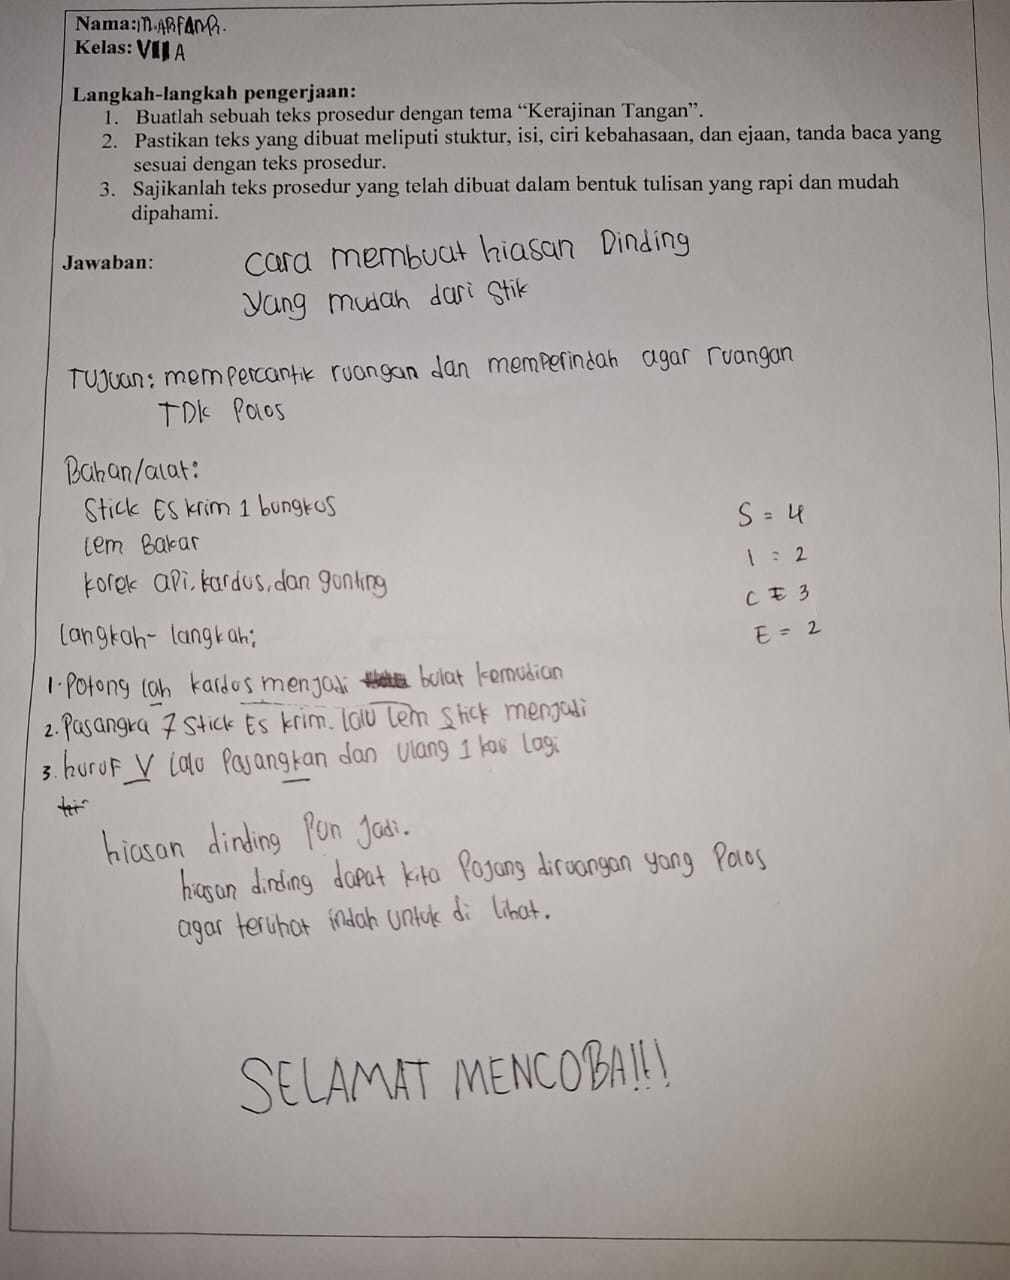 Nama: M. ARFAN R.
Kelas: VII A
Langkah-langkah pengerjaan:
1. Buatlah sebuah teks prosedur dengan tema “Kerajinan Tangan”.
2. Pastikan teks yang dibuat meliputi stuktur, isi, ciri kebahasaan, dan ejaan, tanda baca yang
sesuai dengan teks prosedur.
3. Sajikanlah teks prosedur yang telah dibuat dalam bentuk tulisan yang rapi dan mudah
dipahami.
Jawaban: Cara membuat hiasan Dinding
yang mudah dari Stik
Tujuan: mempercantik ruangan dan memperindah agar ruangan
TDK Polos
Bahan/alat:
Stick Es krim 1 bungkus
S = 4
lem Bakar
I = 2
korek api, kardus, dan gunting
C = 3
E = 2
Langkah-langkah:
1. Potong lah kardus menjadi bulat kemudian
2. Pasangka 7 Stick Es krim. lalu lem Stick menjadi
3. huruf V lalu Pasangkan dan ulang 1 kali lagi
hiasan dinding Pun Jadi.
hiasan dinding dapat kita Pajang diruangan yang Polos
agar terlihat indah untuk di lihat.
SELAMAT MENCOBA!!!